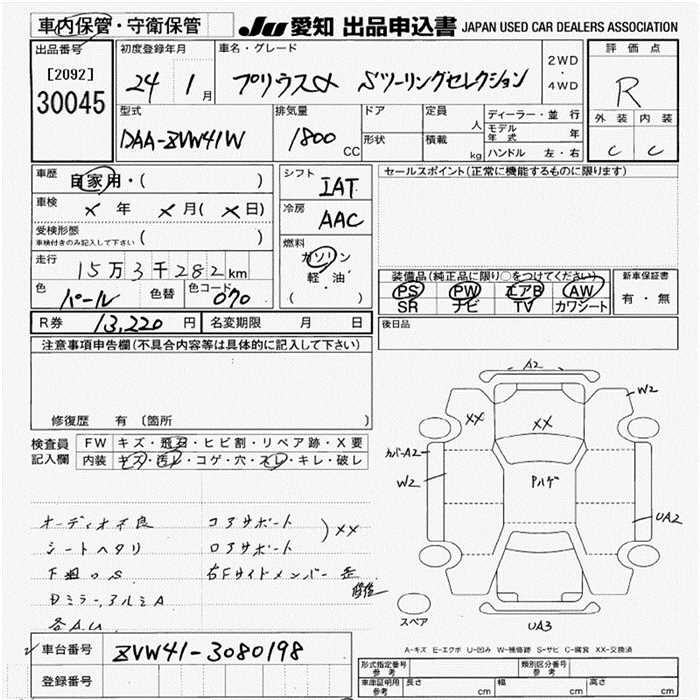 車内保管・守衛保管
JU 愛知 出品申込書 JAPAN USED CAR DEALERS ASSOCIATION
出品番号
[2092]
30045
初度登録年月
24 1 月
車名・グレード
プリウスα Sツーリングセレクション
2WD
・
4WD
評価点
R
外装 内装
C C
型式
DAA-ZVW41W
排気量
1800 CC
ドア
形状
定員
人
積載
kg
ディーラー・並行
モデル年式 年
ハンドル 左・右
車歴
自家用・( )
車検
× 年 × 月( × 日)
受検形態
車検付きのみ記入して下さい ( )
走行
15万3千282km
色
パール
色替
色コード
070
シフト
IAT
冷房
AAC
燃料
ガソリン
・
軽油
( )
セールスポイント(正常に機能するものに限ります)
装備品(純正品に限り○をつけてください)
PS PW エアB AW
SR ナビ TV カワシート
新車保証書
有・無
R券 13,220 円 名変期限 月 日
後日品
注意事項申告欄(不具合内容等は具体的に記入して下さい)
修復歴 有 〔箇所 〕
検査員
記入欄
FW キズ・飛石・ヒビ割・リペア跡・X要
内装 キズ・汚レ・コゲ・穴・スレ・キレ・破レ
オーディオ不良
シートヘタリ
下廻りS
Dミラー、アルミA
各A.U
コアサポート
ロアサポート
) ××
右Fサイドメンバー
修復
A2
W2
××
××
カバーA2
W2
Rハゲ
UA2
UA3
スペア
A-キズ E-エクボ U-凹み W-補修跡 S-サビ C-腐食 XX-交換済
車台番号 ZVW41-3080198
登録番号
形式指定番号
参考
類別区分番号
参考
車庫証明用
参考
長さ cm
幅 cm
高さ cm